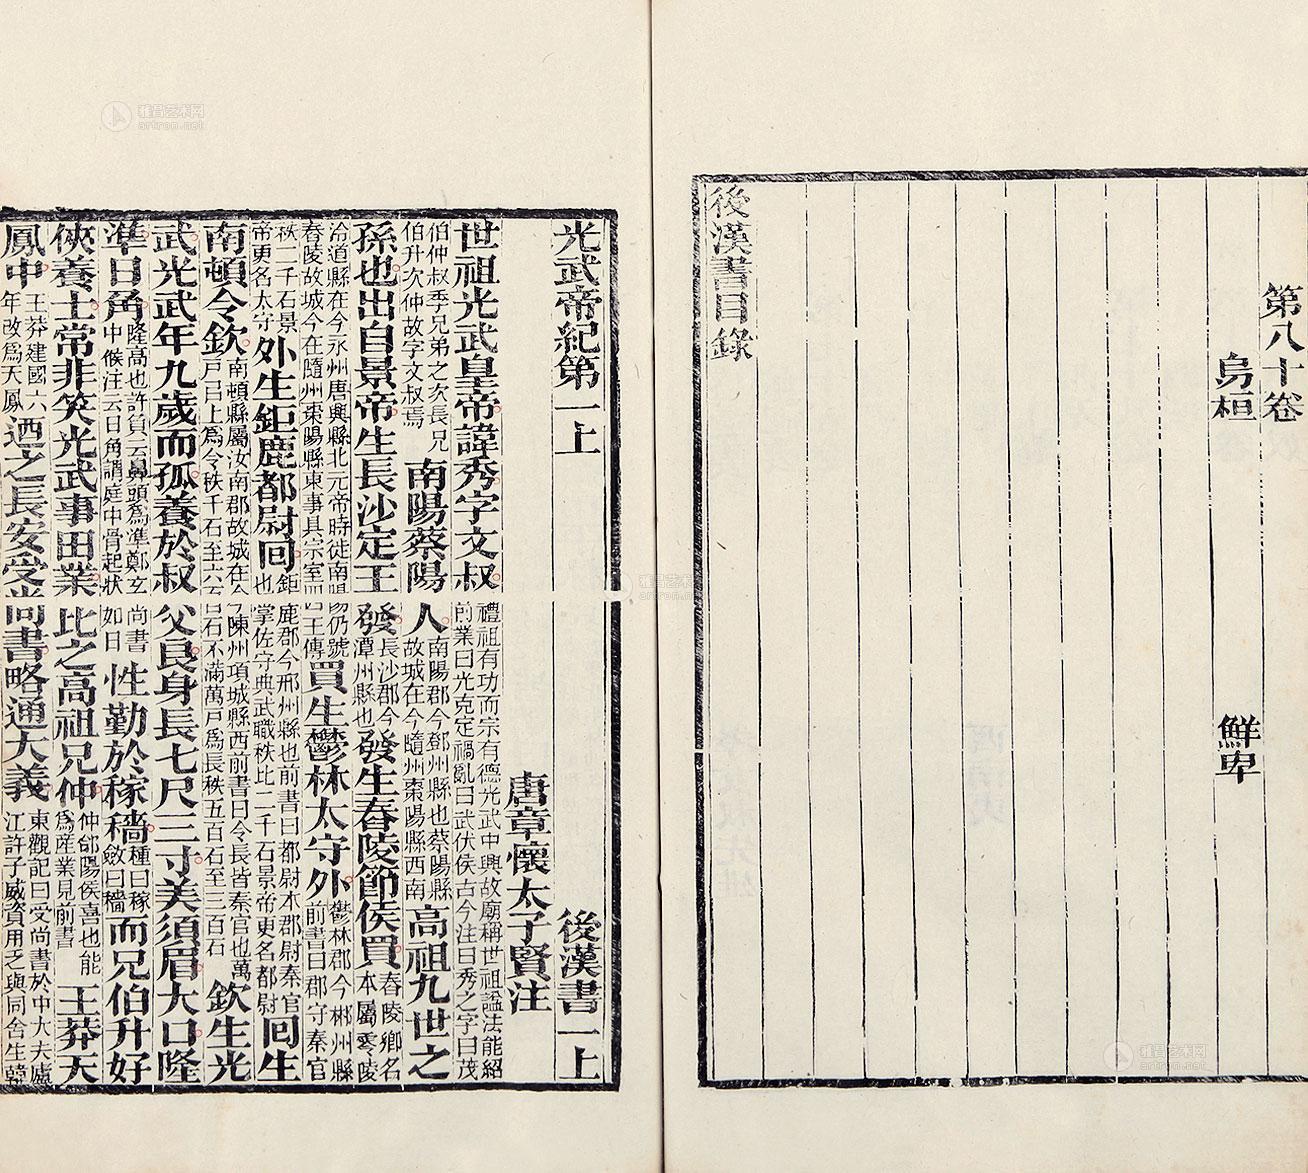 第八十卷
烏桓 鮮卑
後漢書目錄
光武帝紀第一上 後漢書一上
唐章懷太子賢注
世祖光武皇帝諱秀字文叔禮祖有功而宗有德光武中興故廟稱世祖諡法能紹前業曰光克定禍亂曰武伏侯古今注曰秀之字曰茂
伯仲叔季兄弟之次長兄伯升次仲故字文叔焉南陽蔡陽人南陽郡今鄧州縣也蔡陽縣故城在今隨州棗陽縣西南高祖九世之
孫也出自景帝生長沙定王發長沙郡今潭州縣也發生舂陵節侯買舂陵鄉名本屬零陵
泠道縣在今永州唐興縣北元帝時徙南陽仍號舂陵故城今在隨州棗陽縣東事具宗室四王傳買生鬱林太守外鬱林郡今郴州縣前書曰郡守秦官
秩二千石景帝更名太守外生鉅鹿都尉囘鉅鹿郡今邢州縣也前書曰都尉本郡尉秦官也掌佐守典武職秩比二千石景帝更名都尉囘生
南頓令欽南頓縣屬汝南郡故城在今陳州項城縣西前書曰令長皆秦官也萬戶已上為令秩千石至六百石不滿萬戶為長秩五百石至三百石欽生光
武光武年九歲而孤養於叔父良身長七尺三寸美須眉大口隆
準日角隆高也許負云鼻頭為準鄭玄尚書中候注云日角謂庭中骨起狀如日性勤於稼穡種曰稼斂曰穡而兄伯升好
俠養士常非笑光武事田業比之高祖兄仲仲郃陽侯喜也能為産業見前書王莽天
鳳中王莽建國六年改為天鳳迺之長安受尚書略通大義東觀記曰受尚書於中大夫廬江許子威資用乏與同舍生韓
雅昌艺术网
artron.net
雅昌艺术网
artron.net
雅昌艺术网
artron.net